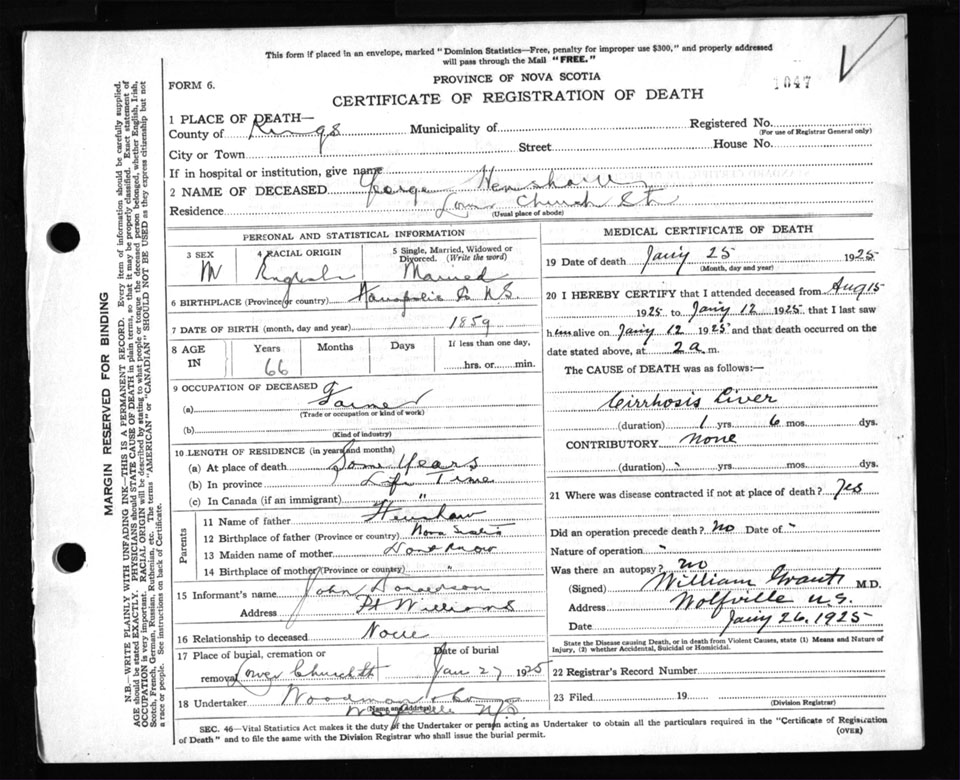 This form if placed in an envelope, marked "Dominion Statistics—Free, penalty for improper use $300," and properly addressed
will pass through the Mail "FREE."
PROVINCE OF NOVA SCOTIA
1047
FORM 6.
CERTIFICATE OF REGISTRATION OF DEATH
1 PLACE OF DEATH—
County of Kings Municipality of Registered No.
(For use of Registrar General only)
City or Town Street House No.
If in hospital or institution, give name
2 NAME OF DECEASED George Henshaw
Residence Lower Church St
(Usual place of abode)
PERSONAL AND STATISTICAL INFORMATION
3 SEX 4 RACIAL ORIGIN 5 Single, Married, Widowed or Divorced. (Write the word)
M English Married
6 BIRTHPLACE (Province or country) Co N.S.
7 DATE OF BIRTH (month, day and year) 1859
8 AGE IN Years Months Days If less than one day,
66 hrs. or min.
9 OCCUPATION OF DECEASED
(a) Farmer
(Trade or occupation or kind of work)
(b)
(Kind of industry)
10 LENGTH OF RESIDENCE (in years and months)
(a) At place of death Some Years
(b) In province Life Time
(c) In Canada (if an immigrant) "
Parents
11 Name of father Henshaw
12 Birthplace of father (Province or country) Nova Scotia
13 Maiden name of mother Dont Know
14 Birthplace of mother (Province or country) "
15 Informant's name John
Address Pt Williams
16 Relationship to deceased None
17 Place of burial, cremation or removal Lower Church St Date of burial Jan 27 1925
18 Undertaker Woodman & Co
(Name and address)
Wolfville N.S.
MEDICAL CERTIFICATE OF DEATH
19 Date of death Jan'y 25 1925
(Month, day and year)
20 I HEREBY CERTIFY that I attended deceased from Aug 15
1925 to Jan'y 12 1925 that I last saw
him alive on Jan'y 12 1925 and that death occurred on the
date stated above, at 2 a m.
The CAUSE OF DEATH was as follows:
Cirrhosis Liver
(duration) 1 yrs. 6 mos. dys.
CONTRIBUTORY None
(duration) yrs. mos. dys.
21 Where was disease contracted if not at place of death? Yes
Did an operation precede death? No Date of "
Nature of operation "
Was there an autopsy? No
(Signed) William Grant M.D.
Address Wolfville N.S.
Date Jan'y 26, 1925
State the Disease causing Death, or in death from Violent Causes, state (1) Means and Nature of
Injury, (2) whether Accidental, Suicidal or Homicidal.
22 Registrar's Record Number
23 Filed 19
(Division Registrar)
SEC. 46—Vital Statistics Act makes it the duty of the Undertaker or person acting as Undertaker to obtain all the particulars required in the "Certificate of Registration
of Death" and to file the same with the Division Registrar who shall issue the burial permit. (OVER)
MARGIN RESERVED FOR BINDING
N.B.—WRITE PLAINLY WITH UNFADING INK—THIS IS A PERMANENT RECORD. Every item of information should be carefully supplied.
AGE should be stated EXACTLY. PHYSICIANS should STATE CAUSE OF DEATH in plain terms, so that it may be properly classified. Exact statement of
OCCUPATION is very important. RACIAL ORIGIN will be described by stating to what people or tongue the deceased person belonged, whether English, Irish,
Scotch, French, German, Russian, Ruthenian, etc. The terms "AMERICAN" or "CANADIAN" SHOULD NOT BE USED as they express citizenship but not
a race or people. See instructions on back of Certificate.